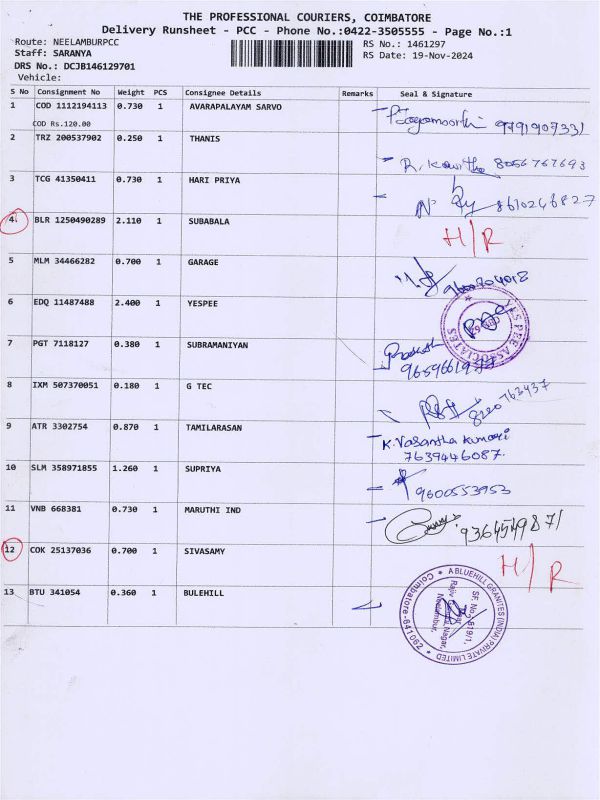 THE PROFESSIONAL COURIERS, COIMBATORE
Delivery Runsheet - PCC - Phone No.:0422-3505555 - Page No.:1
Route: NEELAMBURPCC
RS No.: 1461297
Staff: SARANYA
RS Date: 19-Nov-2024
DRS No.: DCJB146129701
Vehicle:
S No Consignment No Weight PCS Consignee Details Remarks Seal & Signature
1 COD 1112194113 0.730 1 AVARAPALAYAM SARVO
COD Rs.120.00
2 TRZ 200537902 0.250 1 THANIS
R. Kavitha 8056767693
3 TCG 41350411 0.730 1 HARI PRIYA
8610246827
4 BLR 1250490289 2.110 1 SUBABALA
H/R
5 MLM 34466282 0.700 1 GARAGE
6 EDQ 11487488 2.400 1 YESPEE
7 PGT 7118127 0.380 1 SUBRAMANIYAN
8 IXM 507370051 0.180 1 G TEC
9 ATR 3302754 0.870 1 TAMILARASAN
K. Vasantha Kumari
7639446087.
10 SLM 358971855 1.260 1 SUPRIYA
9600553953
11 VNB 668381 0.730 1 MARUTHI IND
9364549871
12 COK 25137036 0.700 1 SIVASAMY
H/R
13 BTU 341054 0.360 1 BULEHILL
A BLUEHILL GRANITES (INDIA) PRIVATE LIMITED
Coimbatore-641062
Neelambur,